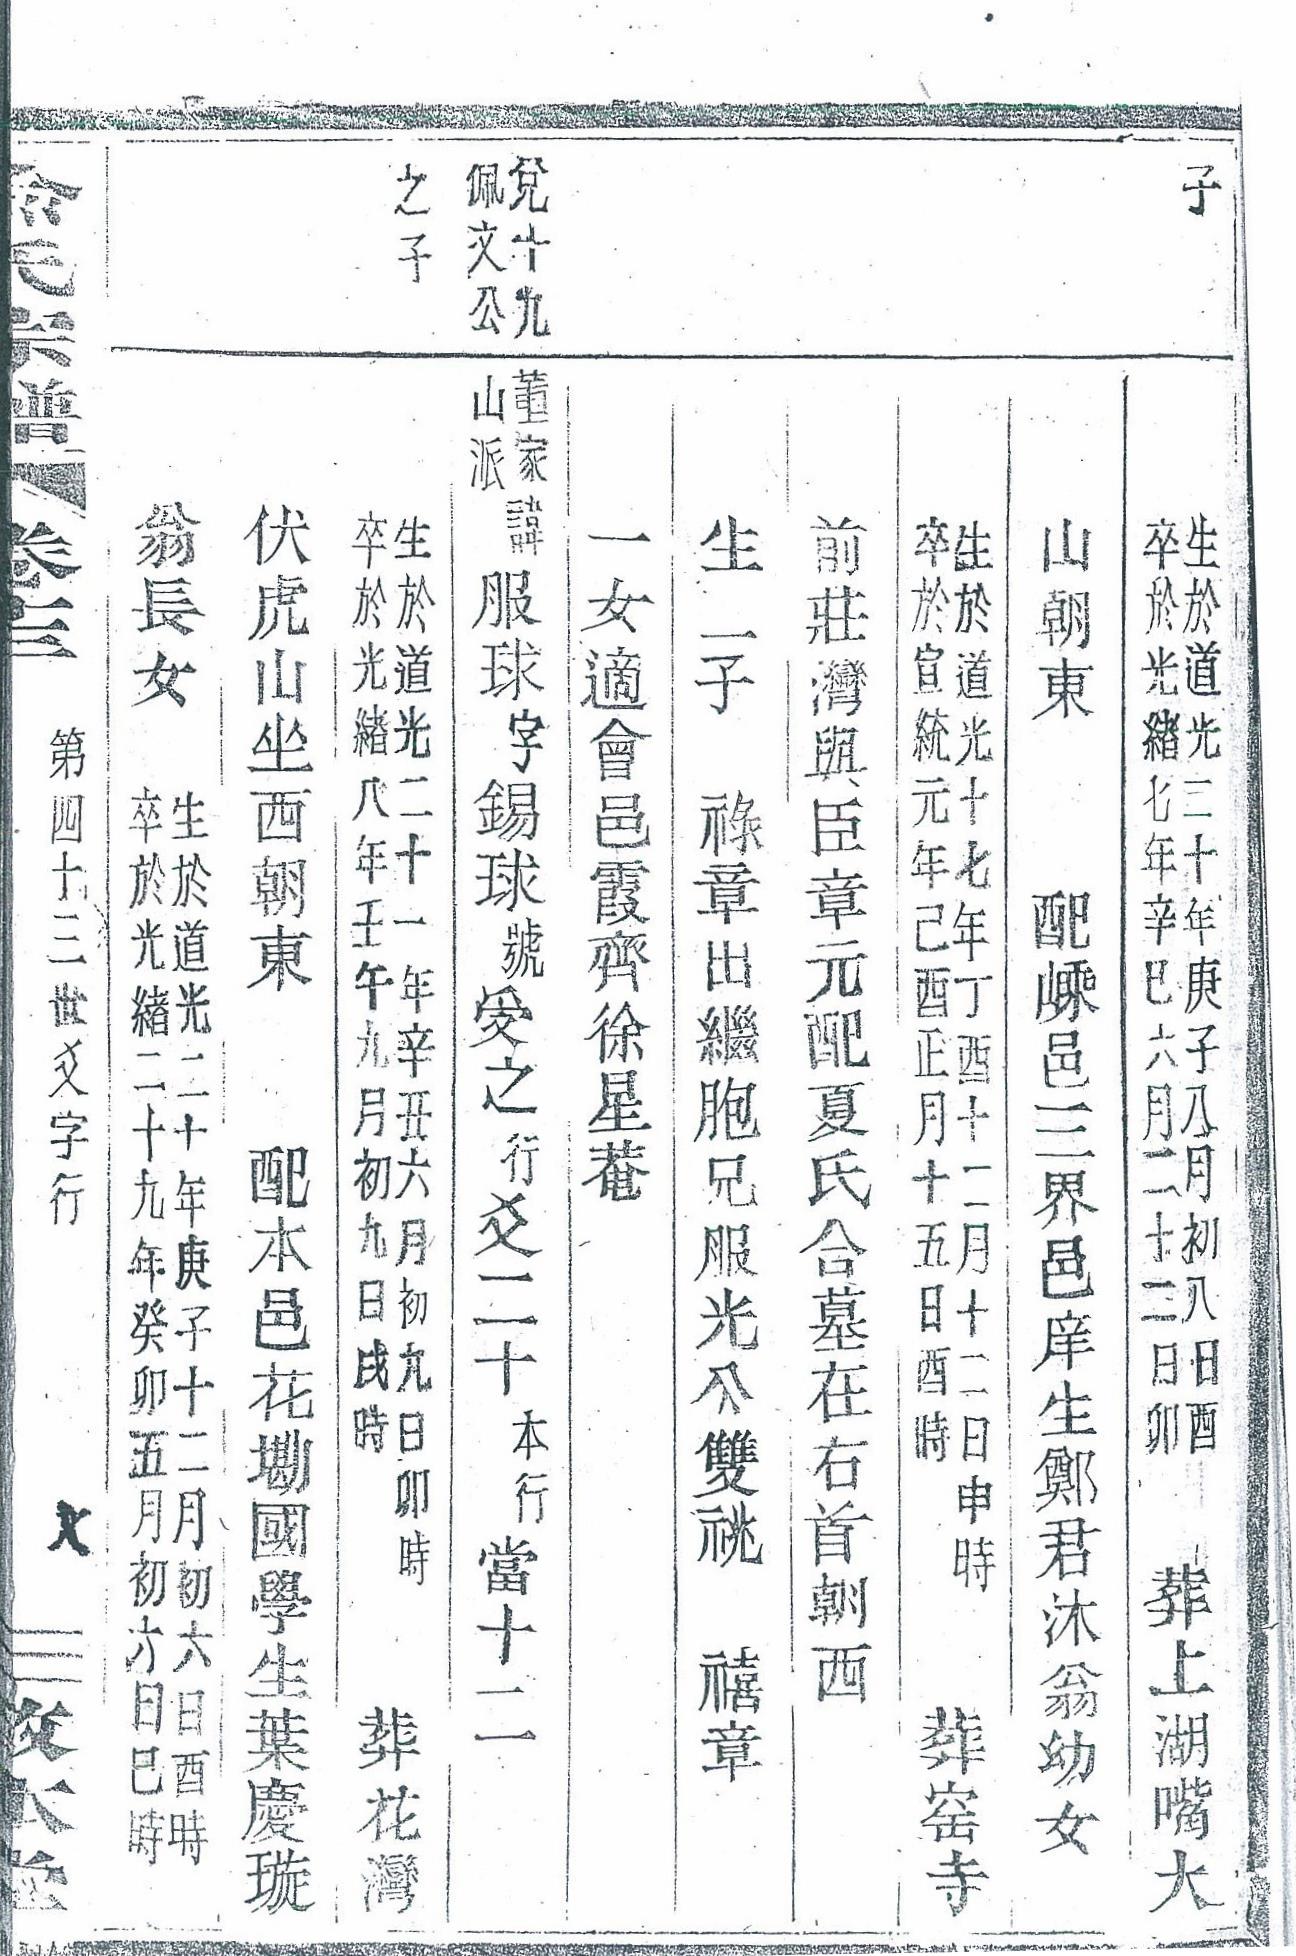 子
生於道光二十年庚子八月初八日酉
卒於光緒七年辛巳六月二十二日卯
葬上湖嘴大
山朝東 配嵊邑三界邑庠生鄭君沐翁幼女
生於道光十七年丁酉十二月十二日申時
卒於宣統元年己酉正月十五日酉時
葬窑寺
前莊灣與臣章元配夏氏合墓在右首朝西
生一子 祿章出繼胞兄服光公雙祧 禧章
一女適會邑霞齊徐星菴
兌十九
佩文公
之子
董家
山派
諱服球字錫球號愛之行爻二十本行當十二
生於道光二十一年辛丑六月初九日卯時
卒於光緒八年壬午九月初九日戌時
葬花灣
伏虎山坐西朝東 配本邑花墈國學生葉慶璇
翁長女
生於道光二十年庚子十二月初六日酉時
卒於光緒二十九年癸卯五月初六日巳時
氏宗譜 卷三 第四十三世爻字行
敦本堂